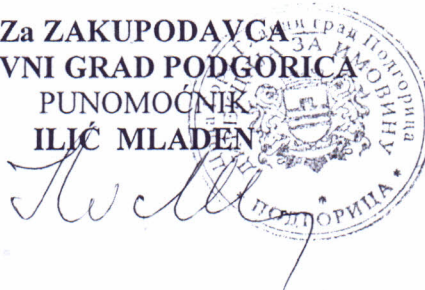 Za ZAKUPODAVCA
VNI GRAD PODGORICA
PUNOMOĆNIK
ILIĆ MLADEN
град Подгорица
ЗА ИМОВИНУ
ПОДГОРИЦА